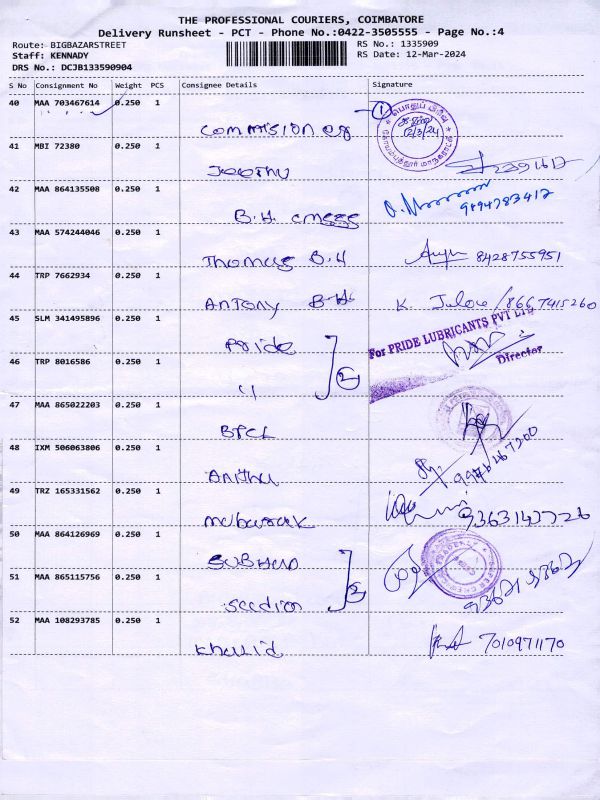 THE PROFESSIONAL COURIERS, COIMBATORE
Delivery Runsheet - PCT - Phone No.:0422-3505555 - Page No.:4
Route: BIGBAZARSTREET
Staff: KENNADY
DRS No.: DCJB133590904
RS No.: 1335909
RS Date: 12-Mar-2024
S No Consignment No Weight PCS Consignee Details Signature
40 MAA 703467614 0.250 1
Commission 1
12/3/24
41 MBI 72380 0.250 1
Jeethu
42 MAA 864135508 0.250 1
B.H. 9894783412
43 MAA 574244046 0.250 1
Thomas B.H 8428755951
44 TRP 7662934 0.250 1
Antony B.H. K. 8667415260
45 SLM 341495896 0.250 1
Pride
For PRIDE LUBRICANTS PVT LTD
Director
46 TRP 8016586 0.250 1
" 2
47 MAA 865022203 0.250 1
BPCL
48 IXM 506063806 0.250 1
Anithu
49 TRZ 165331562 0.250 1
mubarak
50 MAA 864126969 0.250 1
51 MAA 865115756 0.250 1
2
52 MAA 108293785 0.250 1
Khalid 7010971170